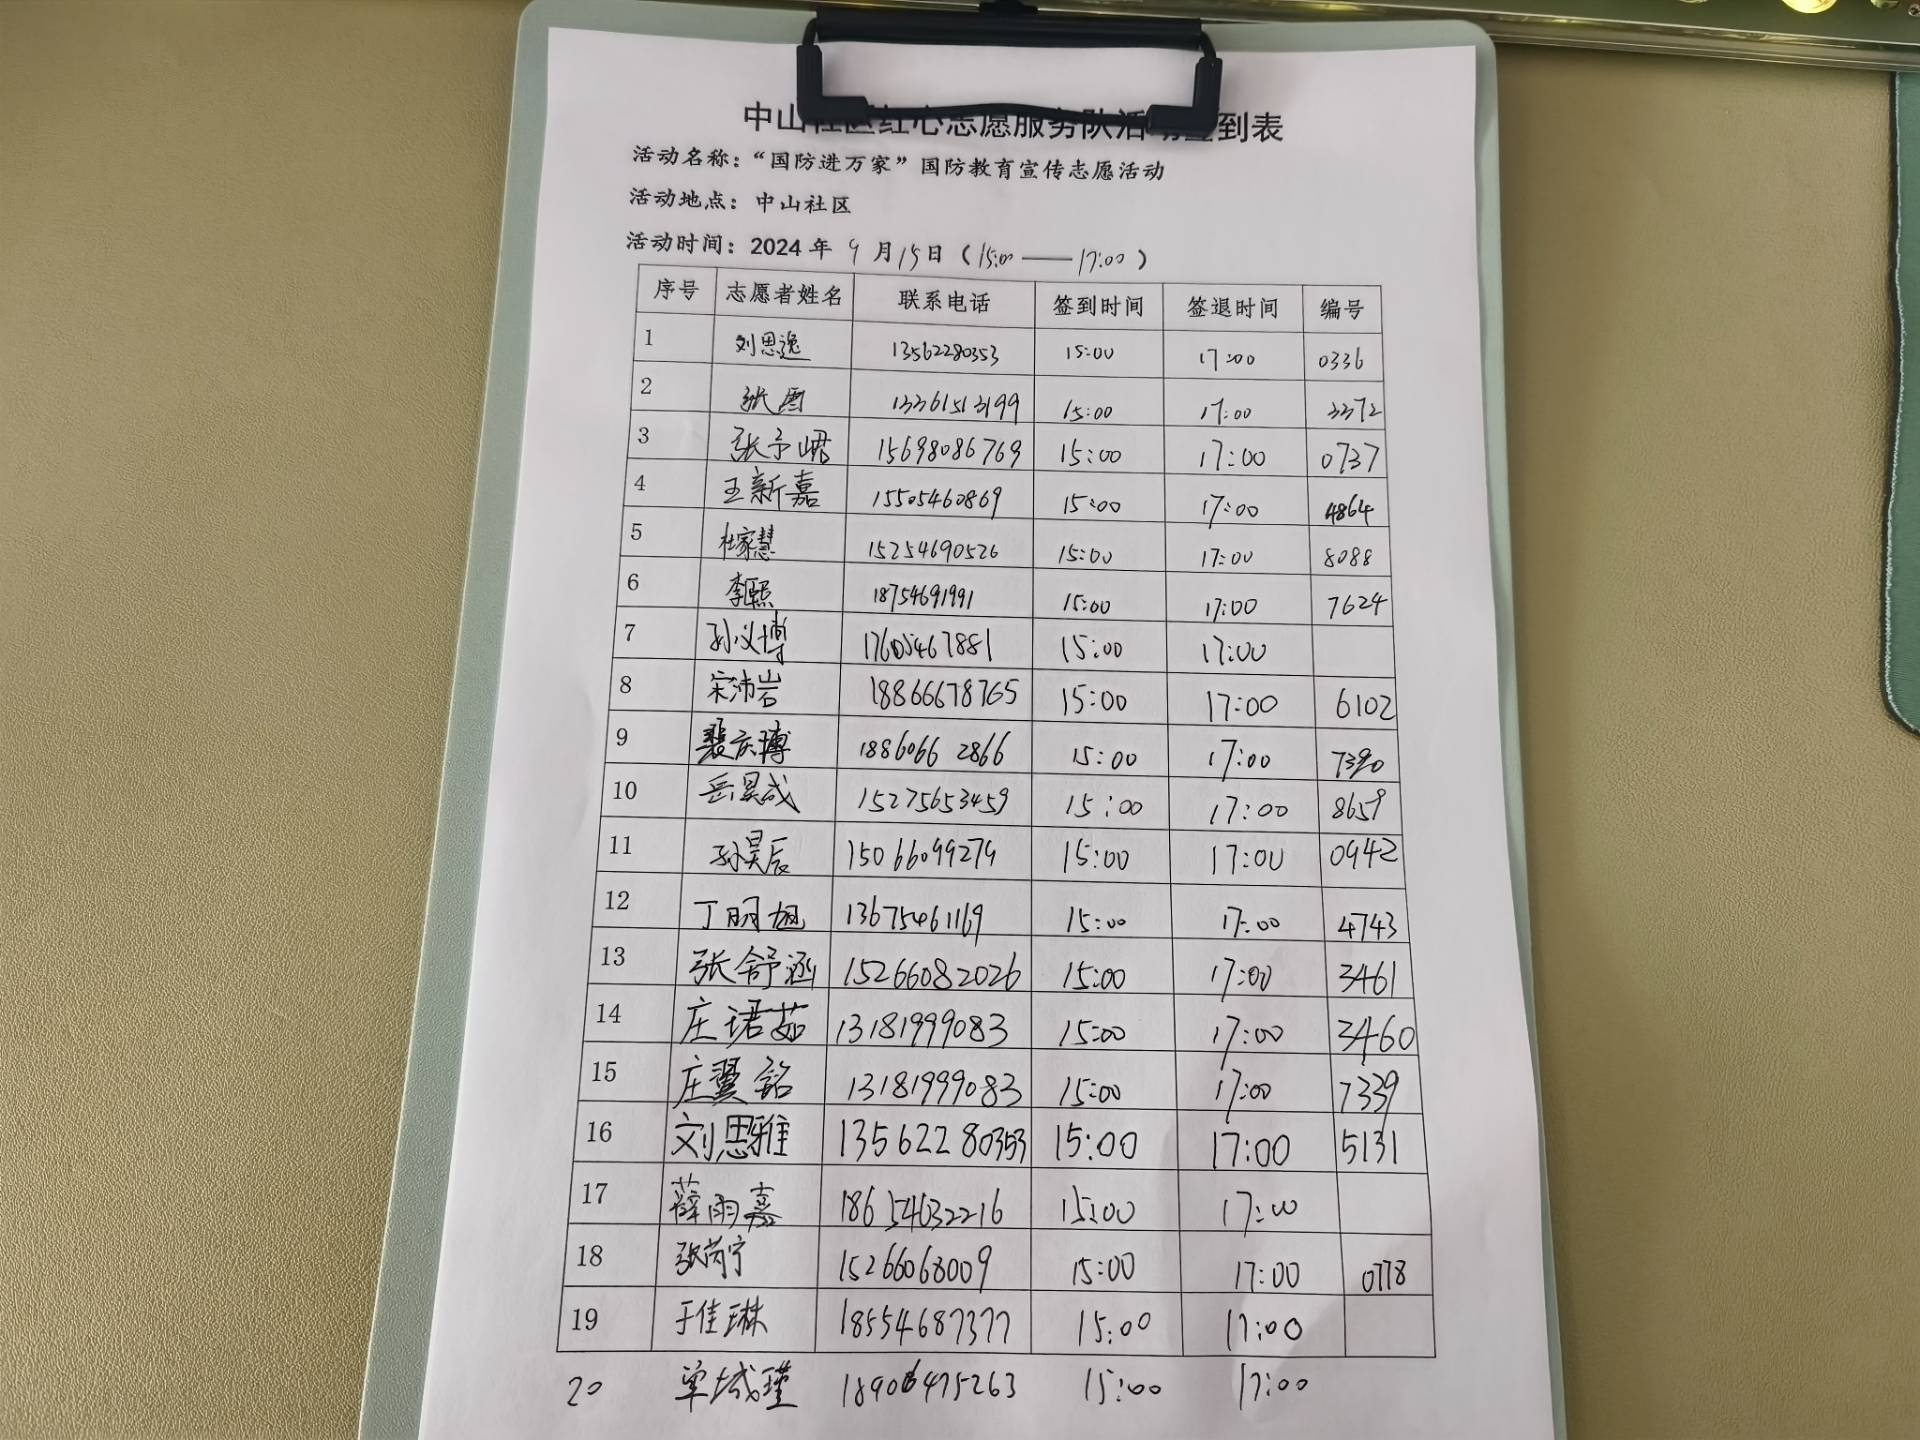 中山社区红心志愿服务队活动签到表
活动名称：“国防进万家”国防教育宣传志愿活动
活动地点：中山社区
活动时间：2024年 9 月 15 日（15:00——17:00）
序号 志愿者姓名 联系电话 签到时间 签退时间 编号
1 刘思逸 13562280353 15:00 17:00 0336
2 张 13361513199 15:00 17:00 3372
3 张予崌 15698086769 15:00 17:00 0737
4 王新嘉 15505460869 15:00 17:00 4864
5 杜家慧 15254690526 15:00 17:00 8088
6 李熙 18754691991 15:00 17:00 7624
7 孙义博 17605467881 15:00 17:00
8 宋沛岩 18866678765 15:00 17:00 6102
9 裴庆博 18860662866 15:00 17:00 7390
10 岳昊成 15275653459 15:00 17:00 8659
11 孙昊辰 15066099279 15:00 17:00 0942
12 丁明旭 13675461169 15:00 17:00 4743
13 张舒涵 15266082026 15:00 17:00 3461
14 庄珺茹 13181999083 15:00 17:00 3460
15 庄翼铭 13181999083 15:00 17:00 7339
16 刘思雅 13562280353 15:00 17:00 5131
17 薛雨嘉 18654632216 15:00 17:00
18 张芮宁 15266068009 15:00 17:00 0778
19 于佳琳 18554687377 15:00 17:00
20 单域瑾 18906475263 15:00 17:00